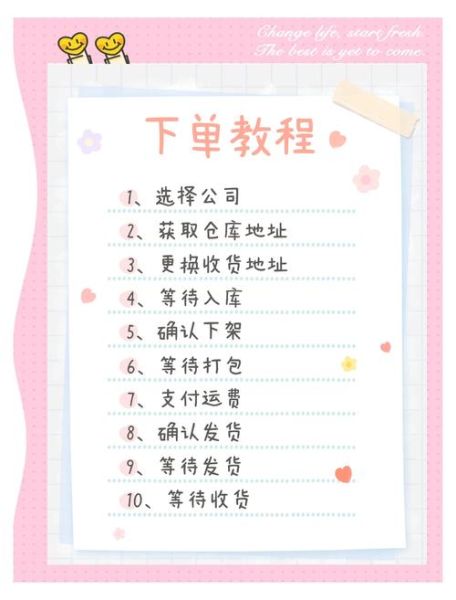 Change life, start fresh.
The best is yet to come.
下单教程
1、选择公司
2、获取仓库地址
3、更换收货地址
4、等待入库
5、确认下架
6、等待打包
7、支付运费
8、确认发货
9、等待发货
10、等待收货